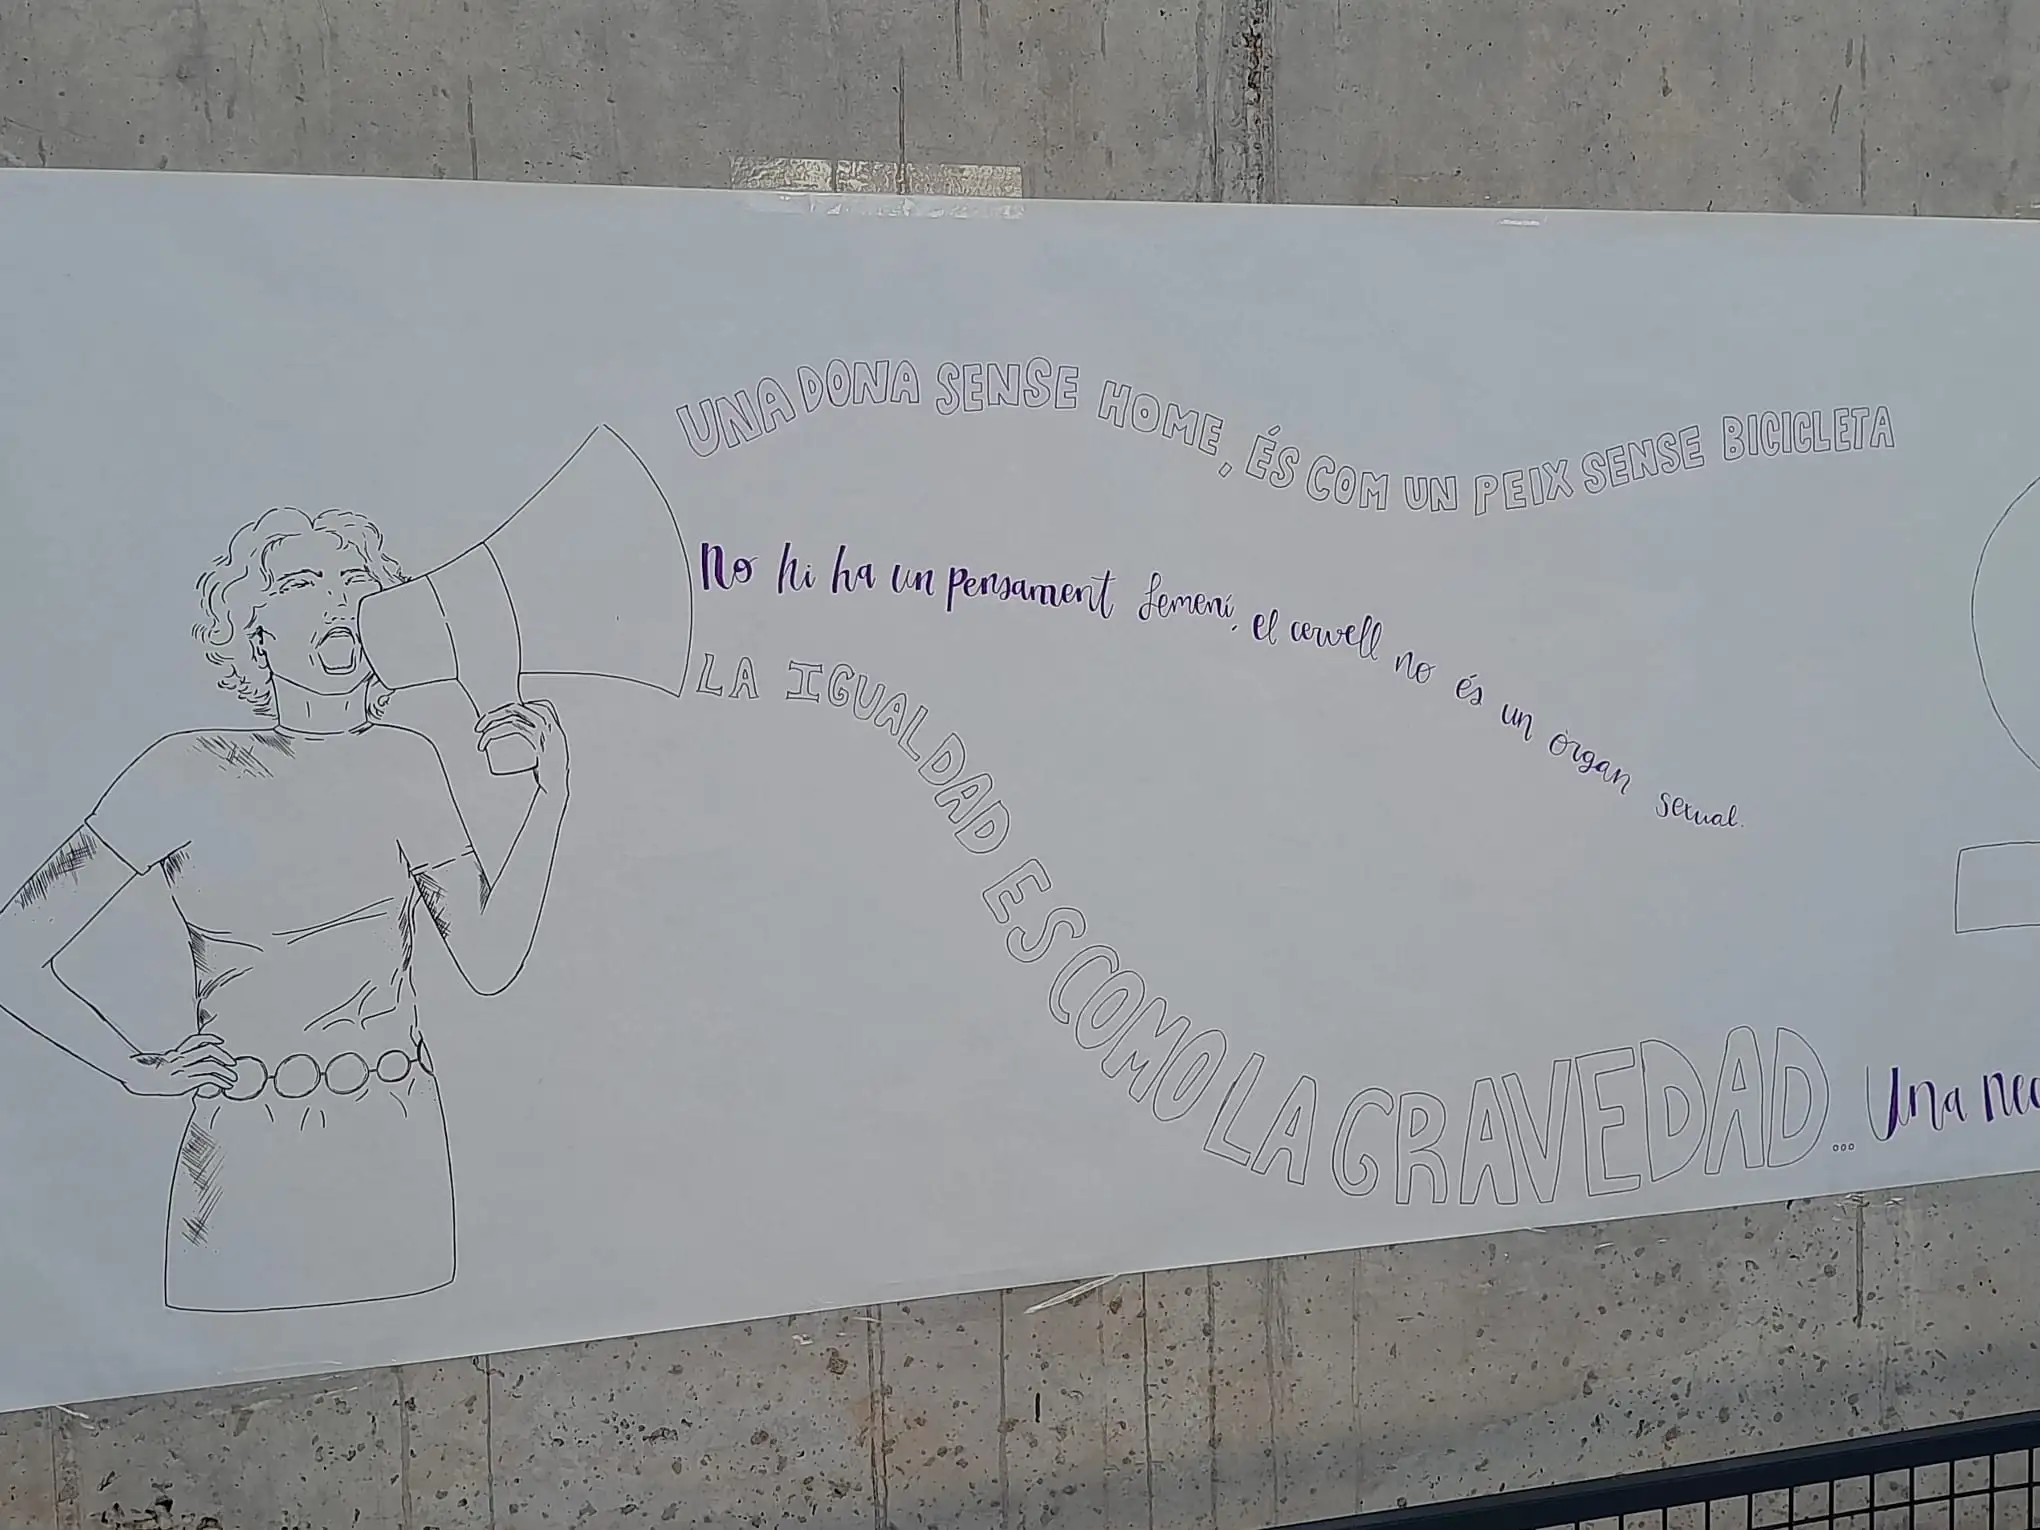 UNA DONA SENSE HOME, ÉS COM UN PEIX SENSE BICICLETA
No hi ha un pensament femení, el cervell no és un òrgan sexual.
LA IGUALDAD ES COMO LA GRAVEDAD... Una nec